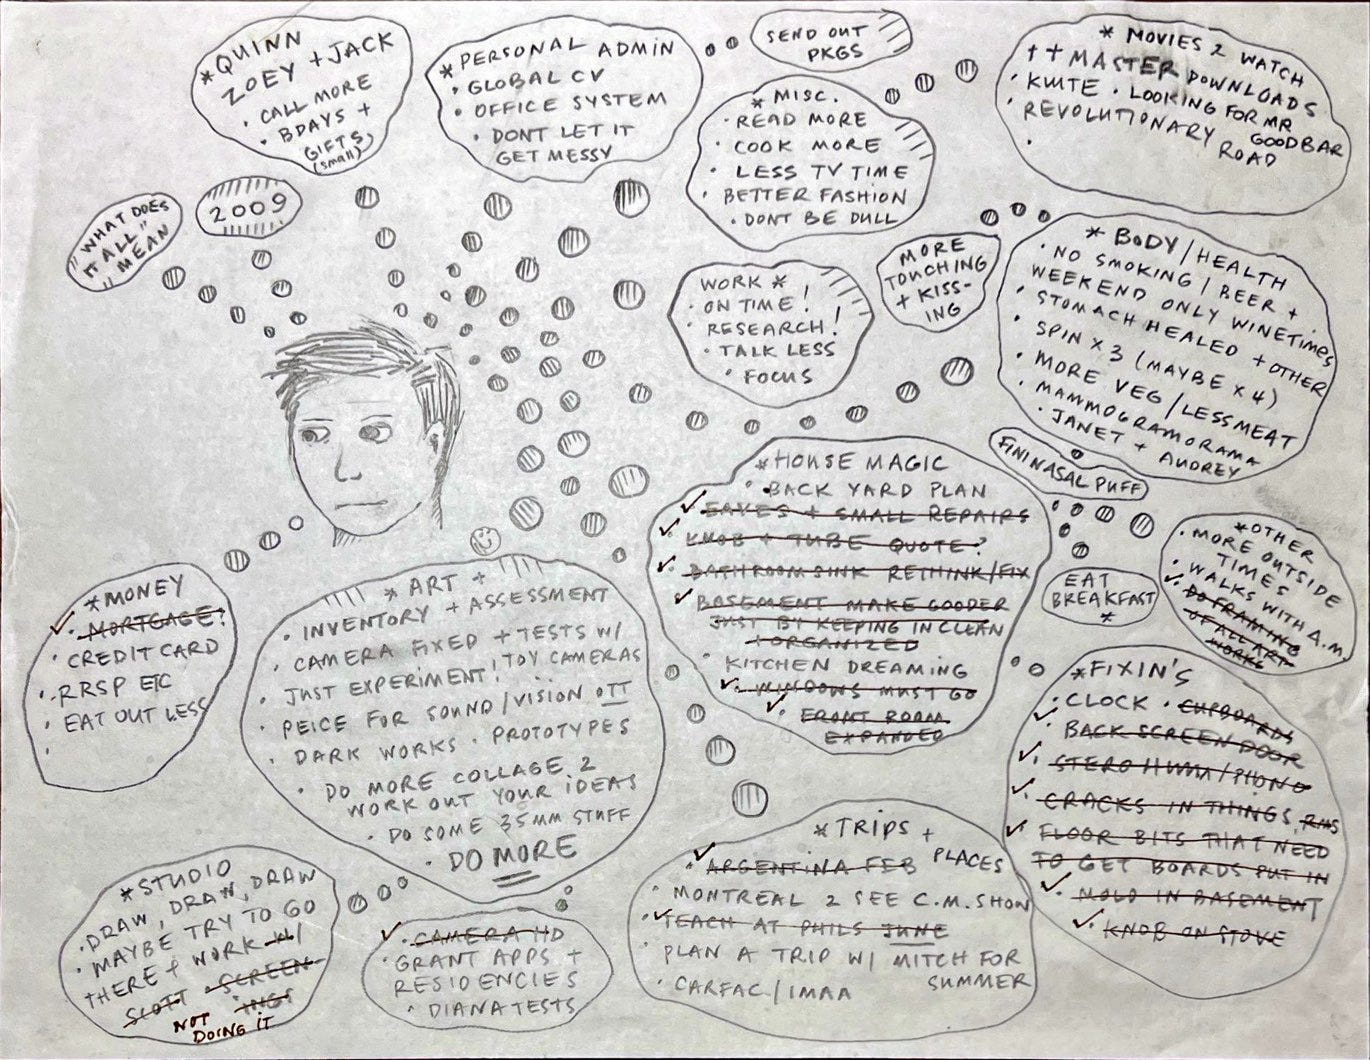 * QUINN
ZOEY + JACK
· CALL MORE
· BDAYS +
GIFTS
(small)
* PERSONAL ADMIN
· GLOBAL CV
· OFFICE SYSTEM
· DONT LET IT
GET MESSY
SEND OUT
PKGS
* MISC.
· READ MORE
· COOK MORE
· LESS TV TIME
· BETTER FASHION
· DONT BE DULL
* MOVIES 2 WATCH
++ MASTER DOWNLOADS
· KWTE · LOOKING FOR MR
GOODBAR
· REVOLUTIONARY
ROAD
·
"WHAT DOES
IT ALL"
"MEAN
2009
WORK *
· ON TIME!
· RESEARCH!
· TALK LESS
· FOCUS
MORE
TOUCHING
+ KISS-
ING
* BODY/HEALTH
· NO SMOKING/BEER +
WEEKEND ONLY WINETIMES
· STOMACH HEALED + OTHER
· SPIN x 3 (MAYBE x 4)
· MORE VEG/LESS MEAT
· MAMMOGRAMORAMA
· JANET + AUDREY
FININASAL PUFF
EAT
BREAKFAST
*
* OTHER
· MORE OUTSIDE
TIMES
· WALKS WITH A.M.
✓ · DO FRAMING
OF ALL ART
WORKS
* HOUSE MAGIC
· BACK YARD PLAN
✓ · EAVES + SMALL REPAIRS
✓ · KNOB + TUBE QUOTE?
✓ · BATHROOM SINK RETHINK/FIX
✓ · BASEMENT MAKE GOODER
JUST BY KEEPING IN CLEAN
+ ORGANIZED
· KITCHEN DREAMING
✓ · WINDOWS MUST GO
✓ · FRONT ROOM
EXPANDED
* MONEY
✓ · MORTGAGE?
· CREDIT CARD
· RRSP ETC
· EAT OUT LESS
·
* ART +
· INVENTORY + ASSESSMENT
· CAMERA FIXED + TESTS W/
TOY CAMERAS
· JUST EXPERIMENT!
· PEICE FOR SOUND/VISION OTT
· DARK WORKS · PROTOTYPES
· DO MORE COLLAGE 2
WORK OUT YOUR IDEAS
· DO SOME 35MM STUFF
· DO MORE
* FIXIN'S
· CLOCK · CUPBOARDS
✓ · BACK SCREEN DOOR
✓ · STERO HUMM/PHONO
✓ · CRACKS IN THINGS, RMS
✓ · FLOOR BITS THAT NEED
TO GET BOARDS PUT IN
✓ · MOLD IN BASEMENT
✓ · KNOB ON STOVE
* TRIPS +
PLACES
✓ · ARGENTINA FEB
· MONTREAL 2 SEE C.M. SHOW
✓ · TEACH AT PHILS JUNE
· PLAN A TRIP W/ MITCH FOR
SUMMER
· CARFAC/IMAA
* STUDIO
· DRAW, DRAW, DRAW
· MAYBE TRY TO GO
THERE + WORK W/
SCOTT · SCREEN-
INGS
NOT
DOING IT
✓ · CAMERA HD
· GRANT APPS +
RESIDENCIES
· DIANA TESTS